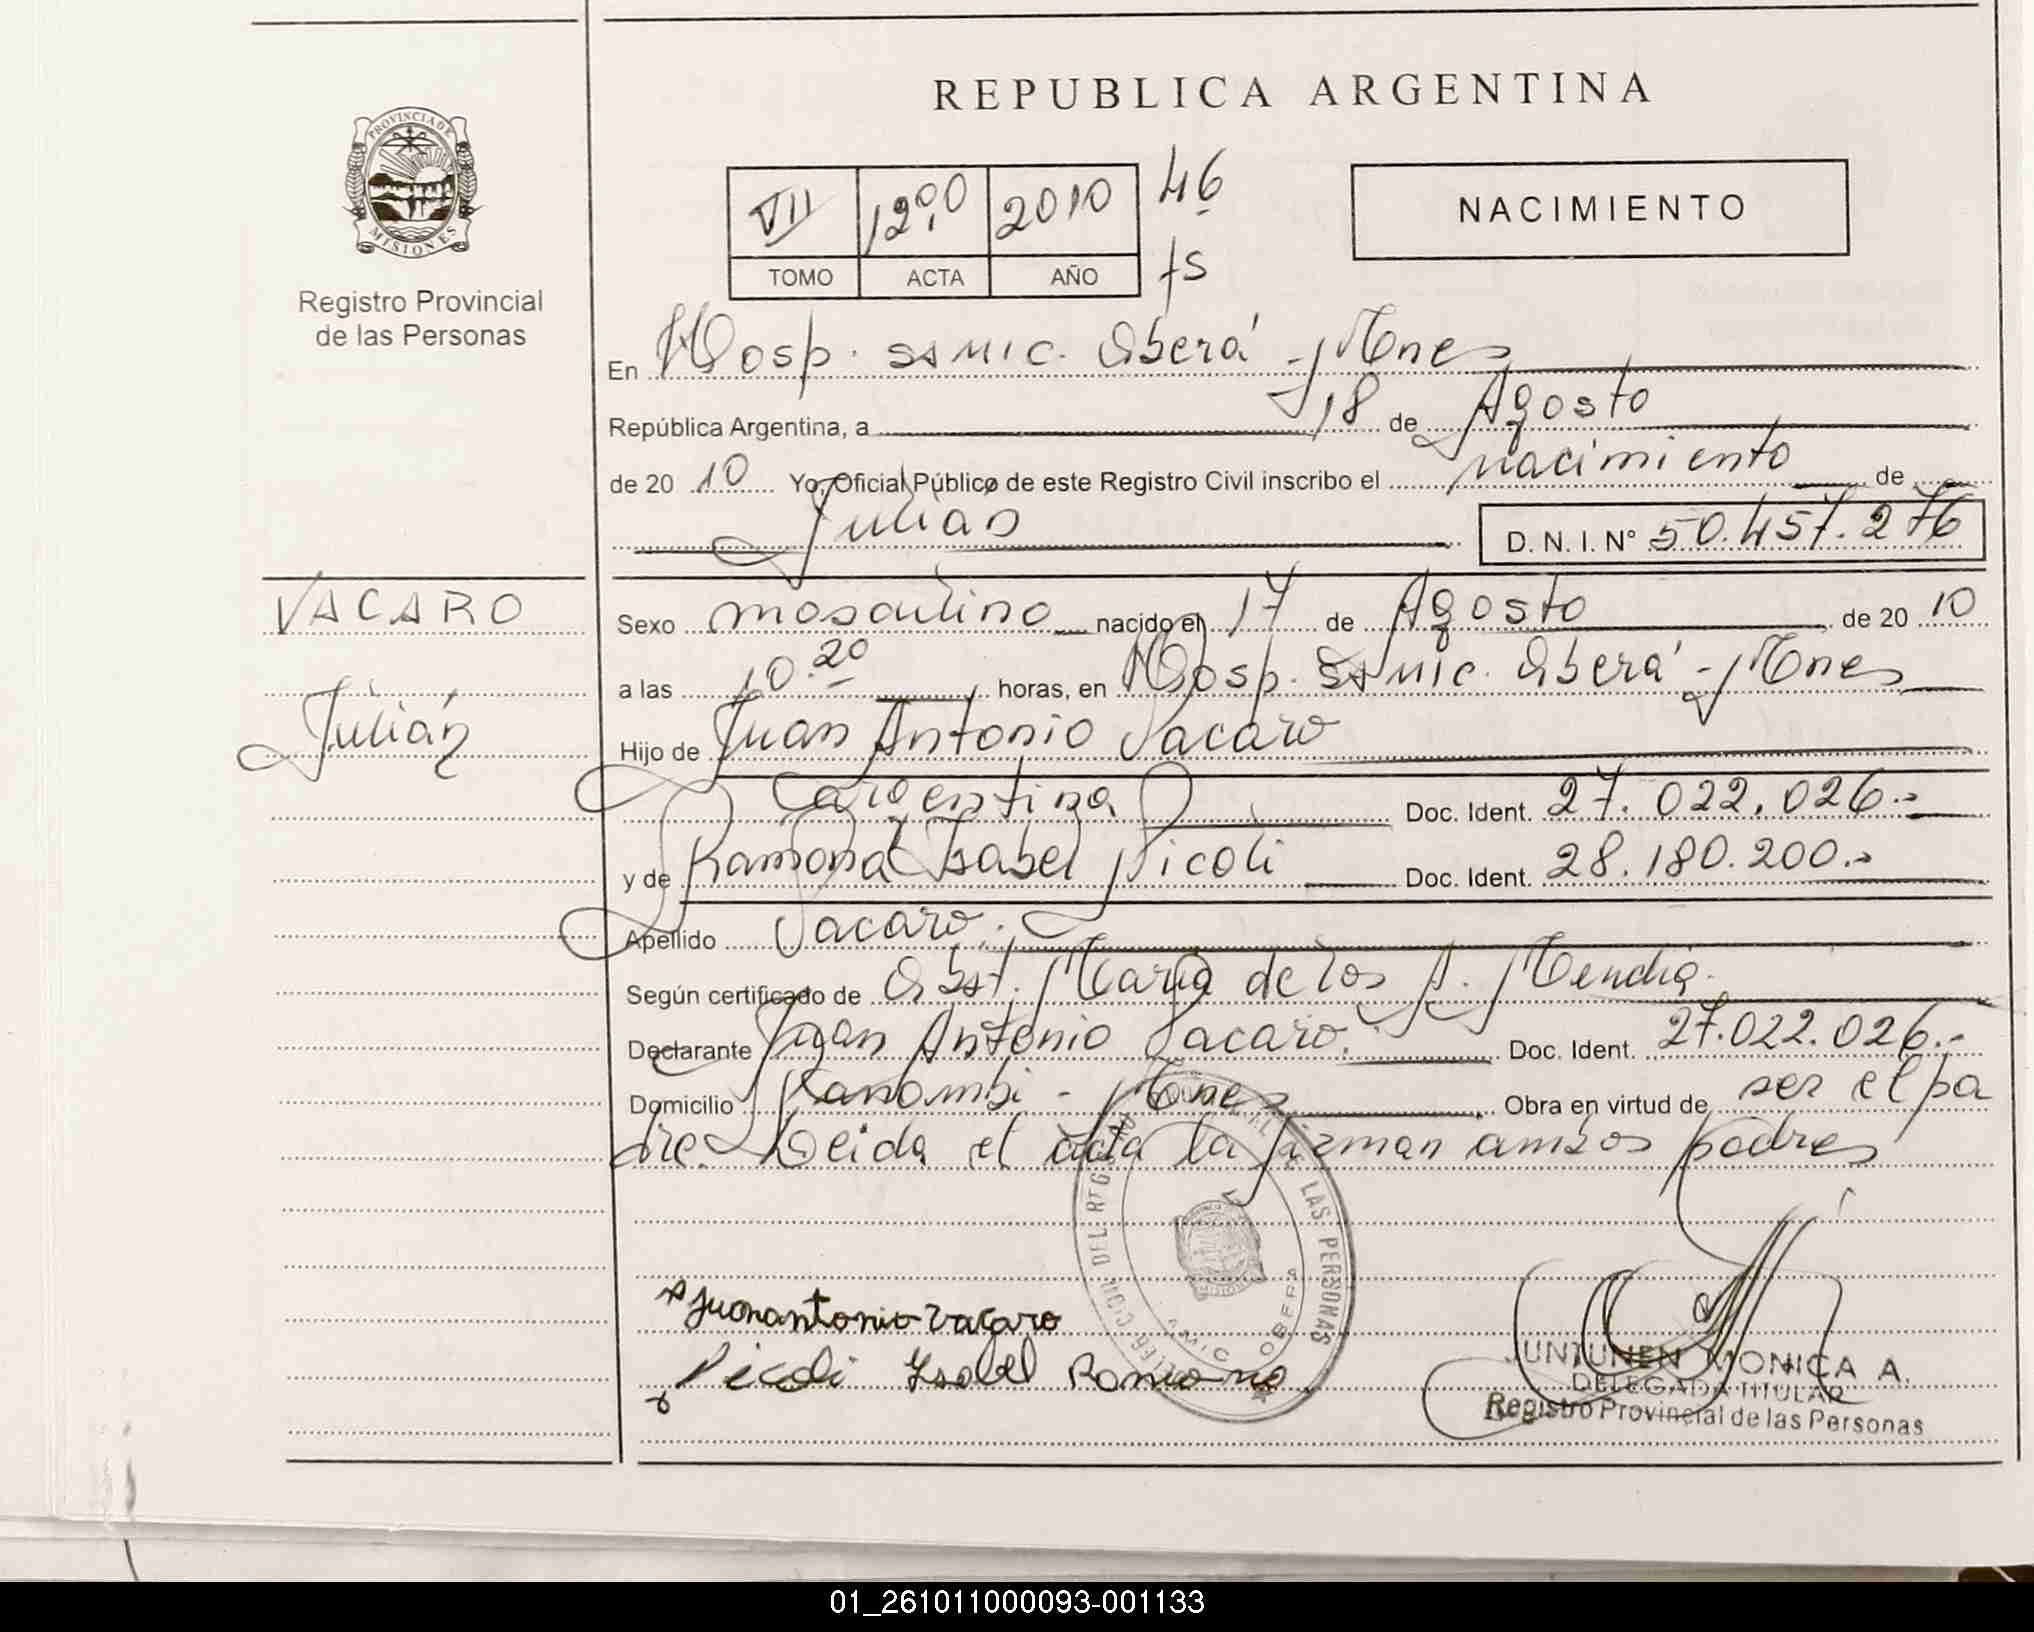 REPUBLICA ARGENTINA
PROVINCIA DE
MISIONES
Registro Provincial
de las Personas
VII 1200 2010 46
TOMO ACTA AÑO fs
NACIMIENTO
En Hosp. SAMIC. Oberá - Mnes
República Argentina, a 18 de Agosto
de 20 10 Yo, Oficial Público de este Registro Civil inscribo el nacimiento de
Julián
D. N. I. N° 50.457.276
VACARO
Julián
Sexo masculino nacido el 17 de Agosto de 20 10
a las 10.20 horas, en Hosp. SAMIC. Oberá - Mnes
Hijo de Juan Antonio Vacaro
argentina Doc. Ident. 27.022.026.-
y de Ramona Isabel Picoli Doc. Ident. 28.180.200.-
Apellido Vacaro.
Según certificado de Obst. María de los A. Mendia.
Declarante Juan Antonio Vacaro. Doc. Ident. 27.022.026.-
Domicilio Panambi - Mnes Obra en virtud de ser el pa
dre. Leida el acta la firman ambos padres
DEL LAS PERSONAS
OBERA
Juan antonio Vacaro
Picoli Isabel Ramona
JUNTUNEN MONICA A.
DELEGADA TITULAR
Registro Provincial de las Personas
01_261011000093-001133